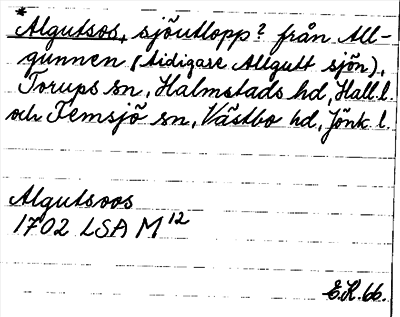 *Algutsos, sjöutlopp? från All-
gunnen (tidigare Allgutt sjön),
Torups sn, Halmstads hd, Hall. l.
och Femsjö sn, Västbo hd, Jönk. l.
Algutsoos
1702 LSA M 12
E.K. 66.